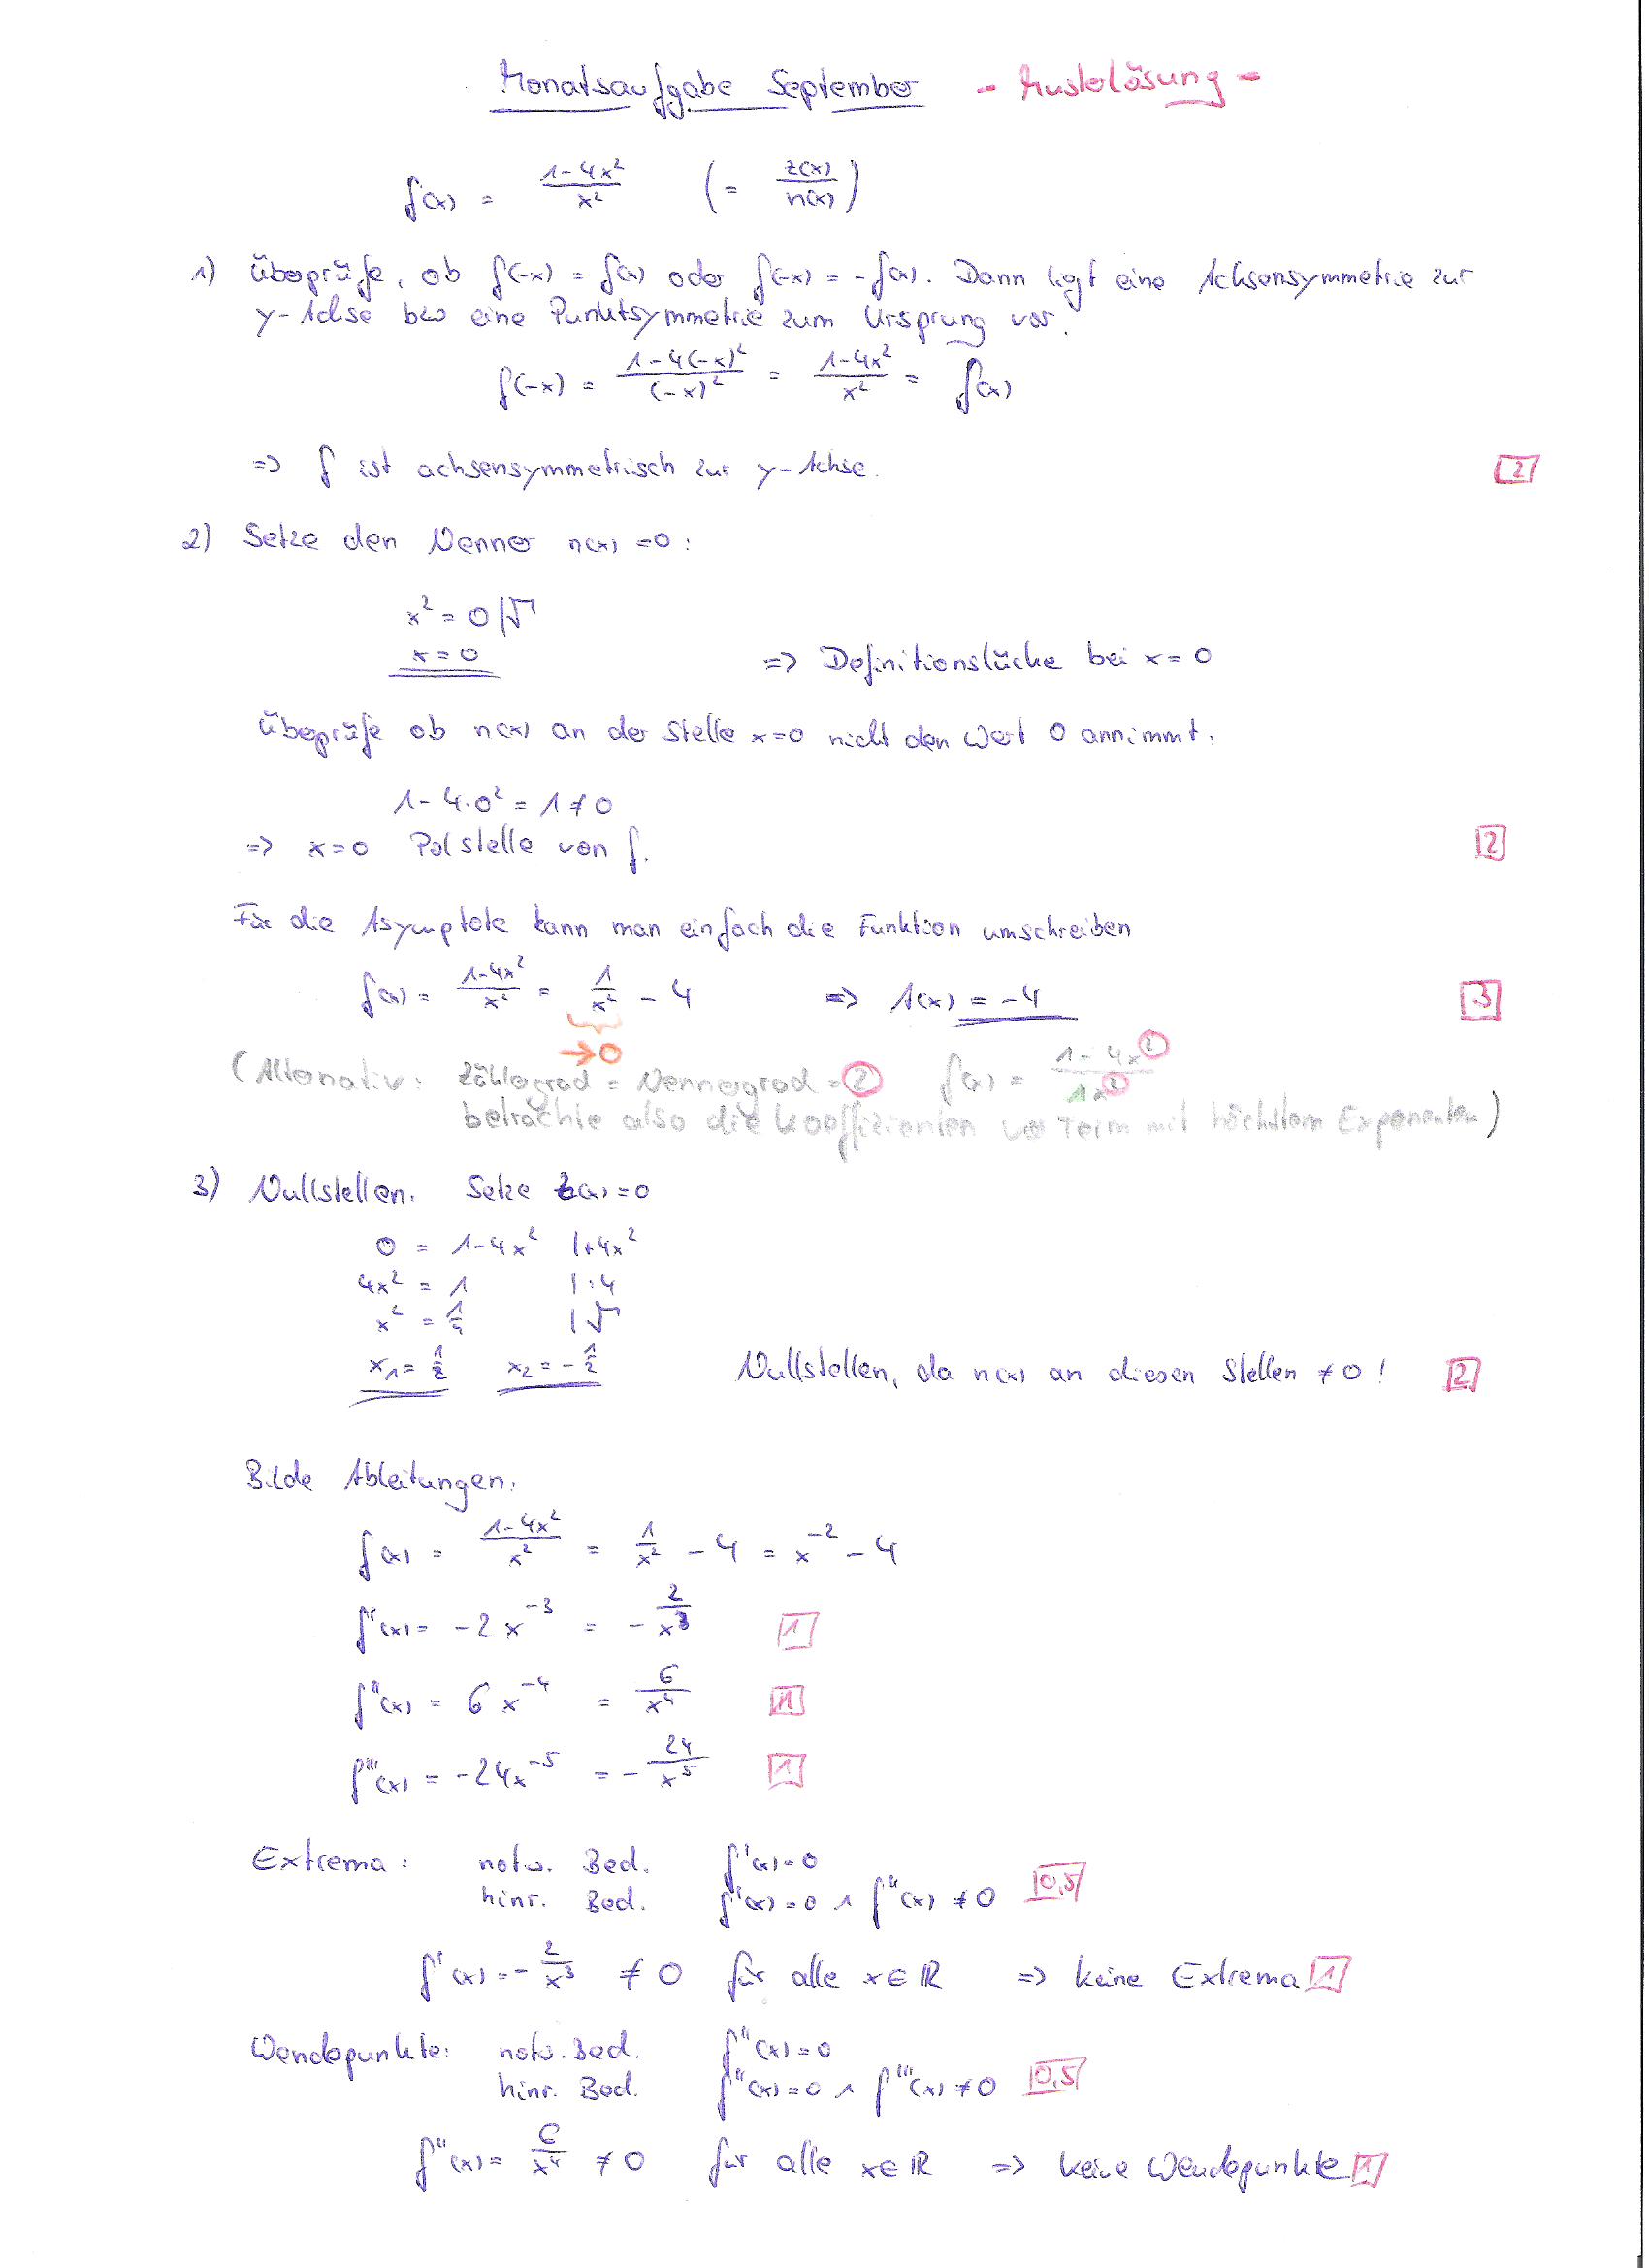 Monatsaufgabe September - Musterlösung -
f(x) = (1-4x²)/x² (= z(x)/n(x))
1) Überprüfe, ob f(-x) = f(x) oder f(-x) = -f(x). Dann liegt eine Achsensymmetrie zur
y-Achse bzw eine Punktsymmetrie zum Ursprung vor.
f(-x) = (1-4(-x)²)/(-x)² = (1-4x²)/x² = f(x)
=> f ist achsensymmetrisch zur y-Achse. 2
2) Setze den Nenner n(x) = 0:
x² = 0 |√
x = 0 => Definitionslücke bei x = 0
Überprüfe ob n(x) an der Stelle x=0 nicht den Wert 0 annimmt.
1-4·0² = 1 ≠ 0
=> x=0 Polstelle von f. 2
Für die Asymptote kann man einfach die Funktion umschreiben
f(x) = (1-4x²)/x² = 1/x² - 4 => A(x) = -4 3
→0
(Alternativ: Zählergrad = Nennergrad = 2 f(x) = (1-4x²)/(1x²)
betrachte also die Koeffizienten vor Term mit höchstem Exponenten)
3) Nullstellen. Setze z(x) = 0
0 = 1-4x² |+4x²
4x² = 1 |:4
x² = 1/4 |√
x₁ = 1/2 x₂ = -1/2 Nullstellen, da n(x) an diesen Stellen ≠ 0! 2
Bilde Ableitungen.
f(x) = (1-4x²)/x² = 1/x² - 4 = x⁻² - 4
f'(x) = -2x⁻³ = -2/x³ 1
f''(x) = 6x⁻⁴ = 6/x⁴ 1
f'''(x) = -24x⁻⁵ = -24/x⁵ 1
Extrema: notw. Bed. f'(x) = 0
hinr. Bed. f'(x) = 0 ∧ f''(x) ≠ 0 0,5
f'(x) = -2/x³ ≠ 0 für alle x∈ℝ => keine Extrema 1
Wendepunkte: notw. Bed. f''(x) = 0
hinr. Bed. f''(x) = 0 ∧ f'''(x) ≠ 0 0,5
f''(x) = 6/x⁴ ≠ 0 für alle x∈ℝ => keine Wendepunkte 1